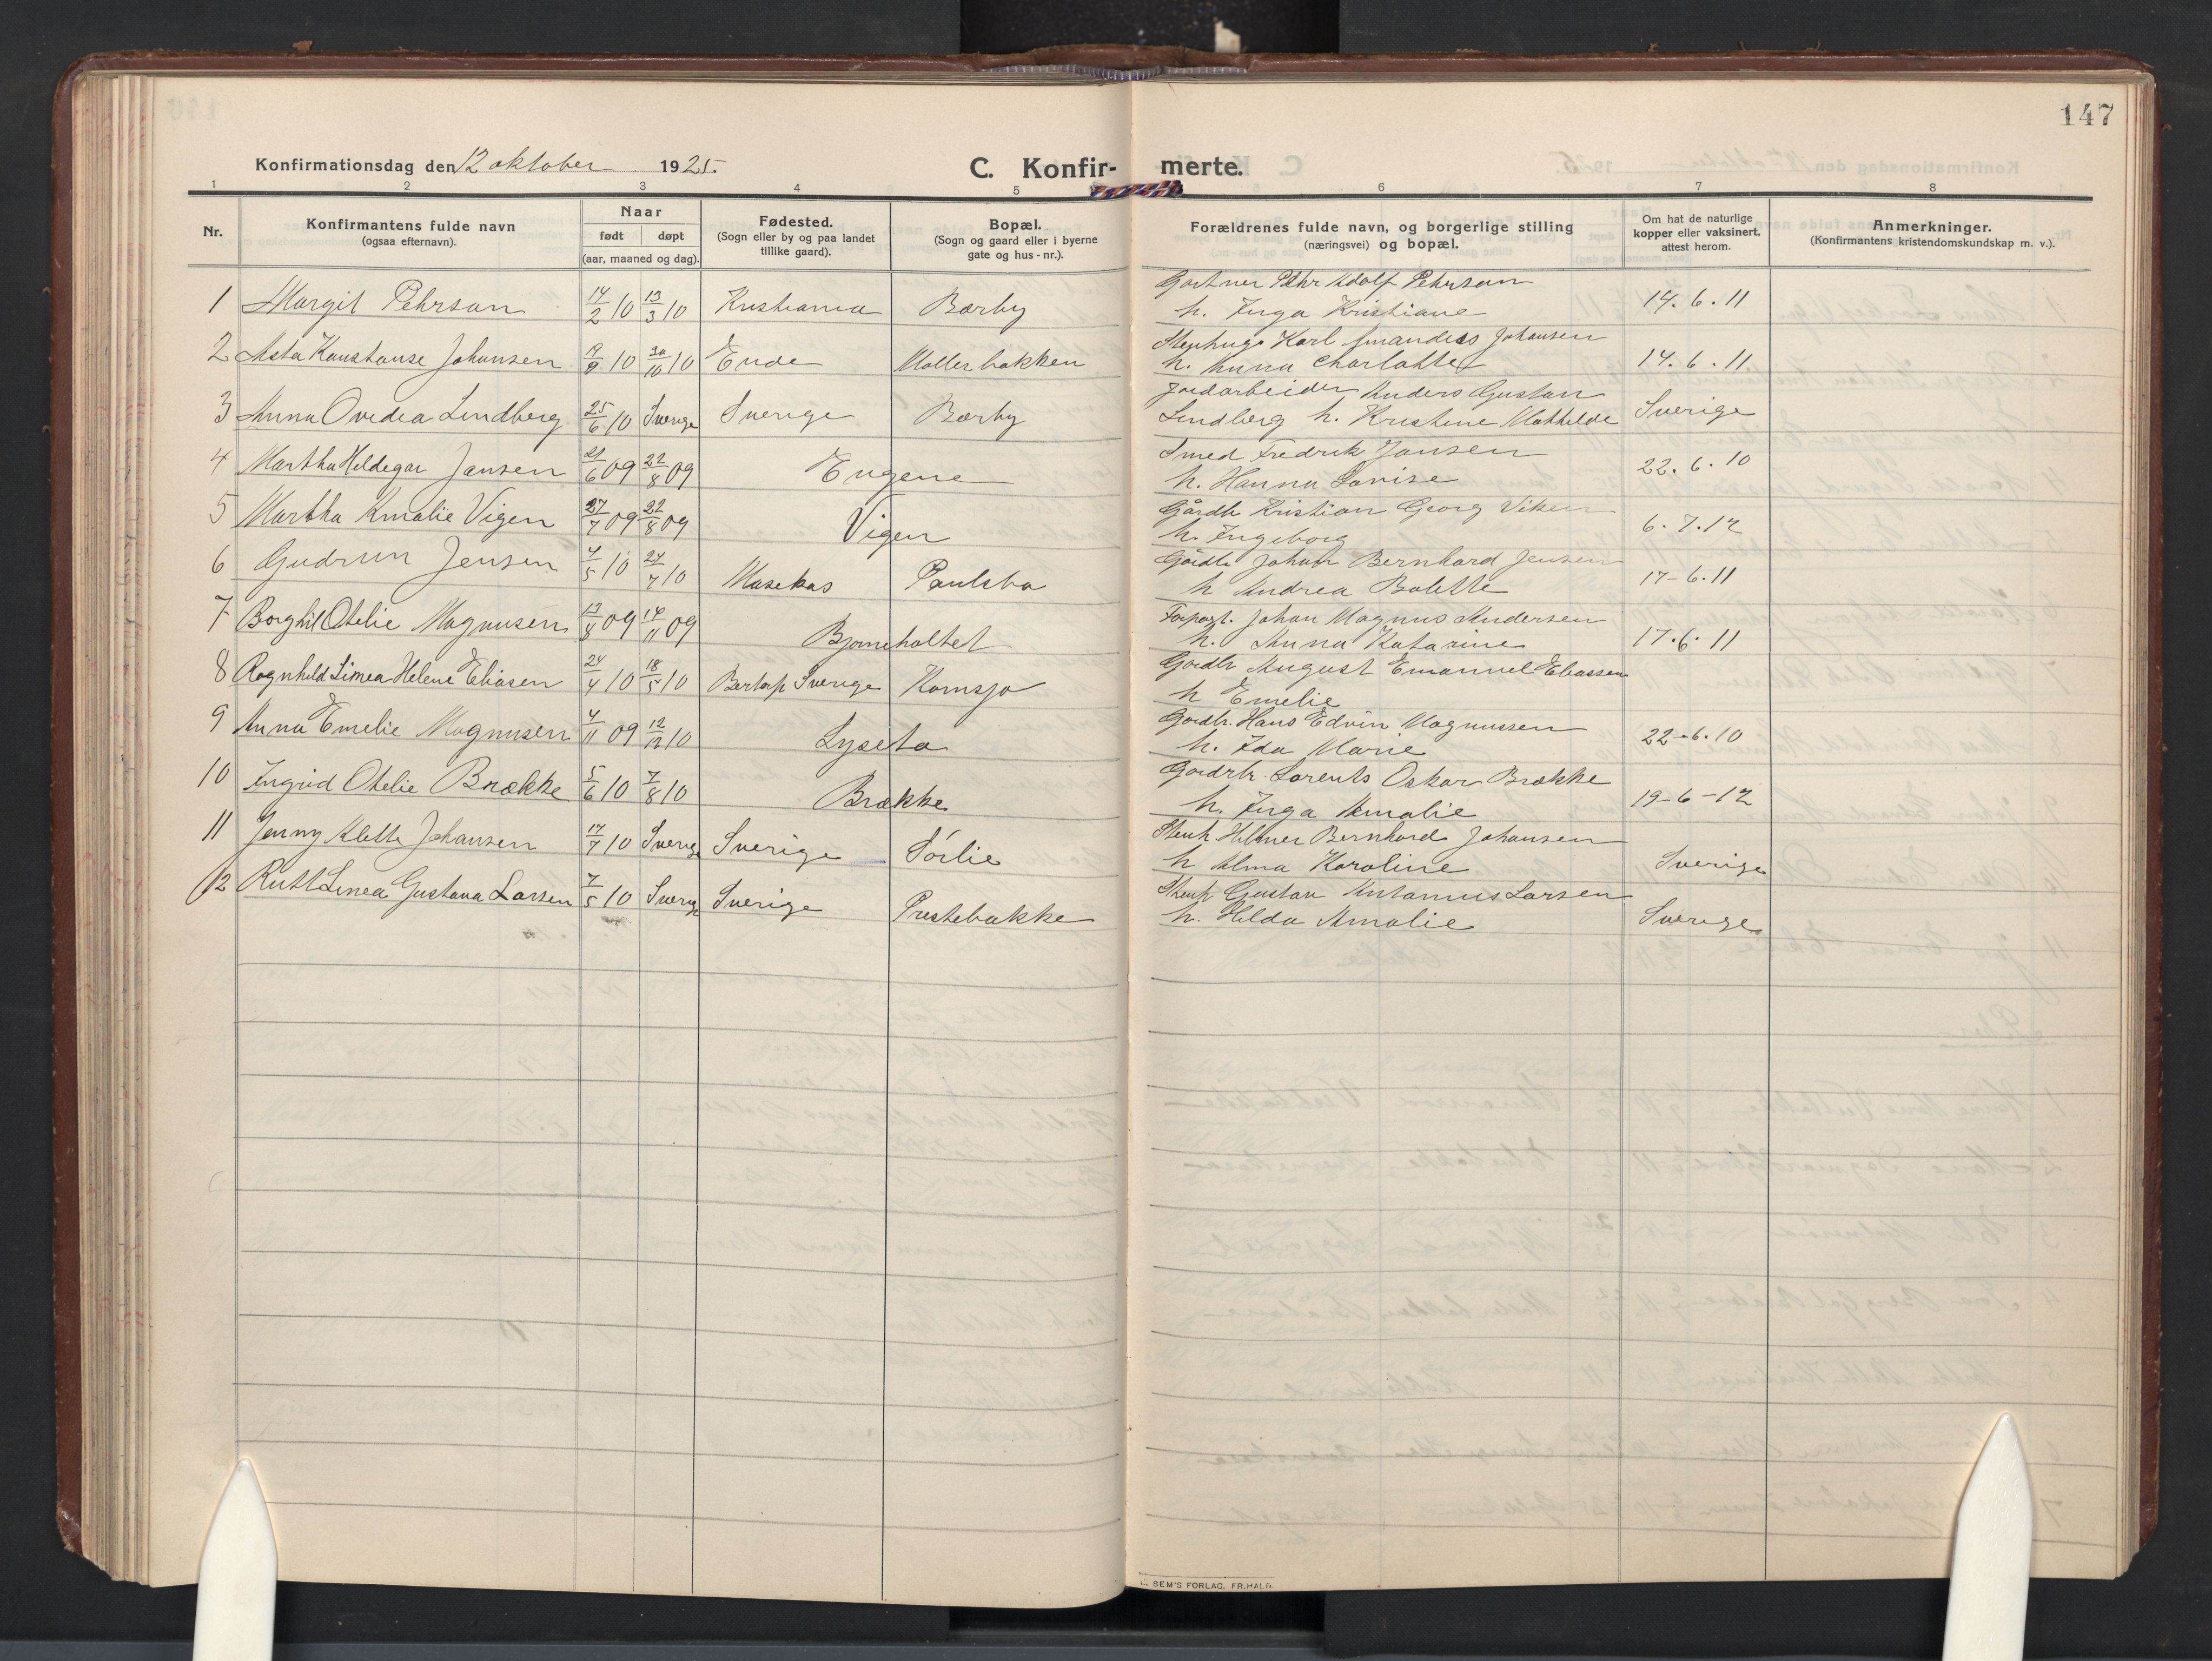 147
Konfirmationsdag den 12 oktober 1925.
C. Konfir- merte.
1 2 3 4 5 6 7 8
Nr.
Konfirmantens fulde navn
(ogsaa efternavn).
Naar
født døpt
(aar, maaned og dag).
Fødested.
(Sogn eller by og paa landet
tillike gaard).
Bopæl.
(Sogn og gaard eller i byerne
gate og hus-nr.).
Forældrenes fulde navn, og borgerlige stilling
(næringsvei) og bopæl.
Om hat de naturlige
kopper eller vaksinert,
attest herom.
Anmerkninger.
(Konfirmantens kristendomskundskap m. v.).
1 Margit Pehrson 14/2 10 13/3 10 Kristiania Bærby
Gartner Pehr Adolf Pehrson
h. Inga Kristiane 14.6.11
2 Asta Konstanse Johansen 9/9 10 30/10 10 Ende Møllerbakken
Stenhugg Karl Amandus Johansen
h. Anna Charlotte 14.6.11
3 Anna Ovedia Lindberg 25/6 10 Sverige Sverige Bærby
Jordarbeider Anders Gustav
Lindberg h. Kristine Mathilde Sverige
4 Martha Hildegar Jansen 21/6 09 22/8 09 Eugene
Smed Fredrik Jansen
h. Hanna Lovise 22.6.10
5 Martha Amalie Vigen 27/7 09 22/8 09 Vigen
Gårdb Kristian Georg Viken
h. Ingeborg 6.7.12
6 Gudrun Jensen 4/5 10 24/7 10 Musekas Paulsbo
Gårdb Johan Bernhard Jensen
h Andrea Bolette 17-6.11
7 Borghil Otelie Magnusen 13/8 09 14/11 09 Bjørneholtet
Forpagt. Johan Magnus Andersen
h. Anna Katarine 17.6.11
8 Ragnhild Linea Helene Eliasen 24/4 10 18/5 10 Sverige Kornsjø
Gårdbr August Emanuel Eliassen
h Emelie
9 Anna Emelie Magnusen 4/11 09 12/12 10 Lyseto
Gårdb. Hans Edvin Magnussen
h. Ida Marie 22-6.10
10 Ingrid Otelie Brække 5/6 10 7/8 10 Brække
Gårdbr. Lorents Oskar Brække
h. Inga Amalie 19-6-12
11 Jenny Alette Johansen 17/7 10 Sverig Sverige Sørlie
Stenh Hilmer Bernhard Johansen
h Alma Karoline Sverige
12 Ruth Linea Gustava Larsen 7/5 10 Sverig Sverige Prestebakke
Stenh Gustav Antonius Larsen
h. Hilda Amalie Sverige
SEM'S FORLAG, FR.HALD